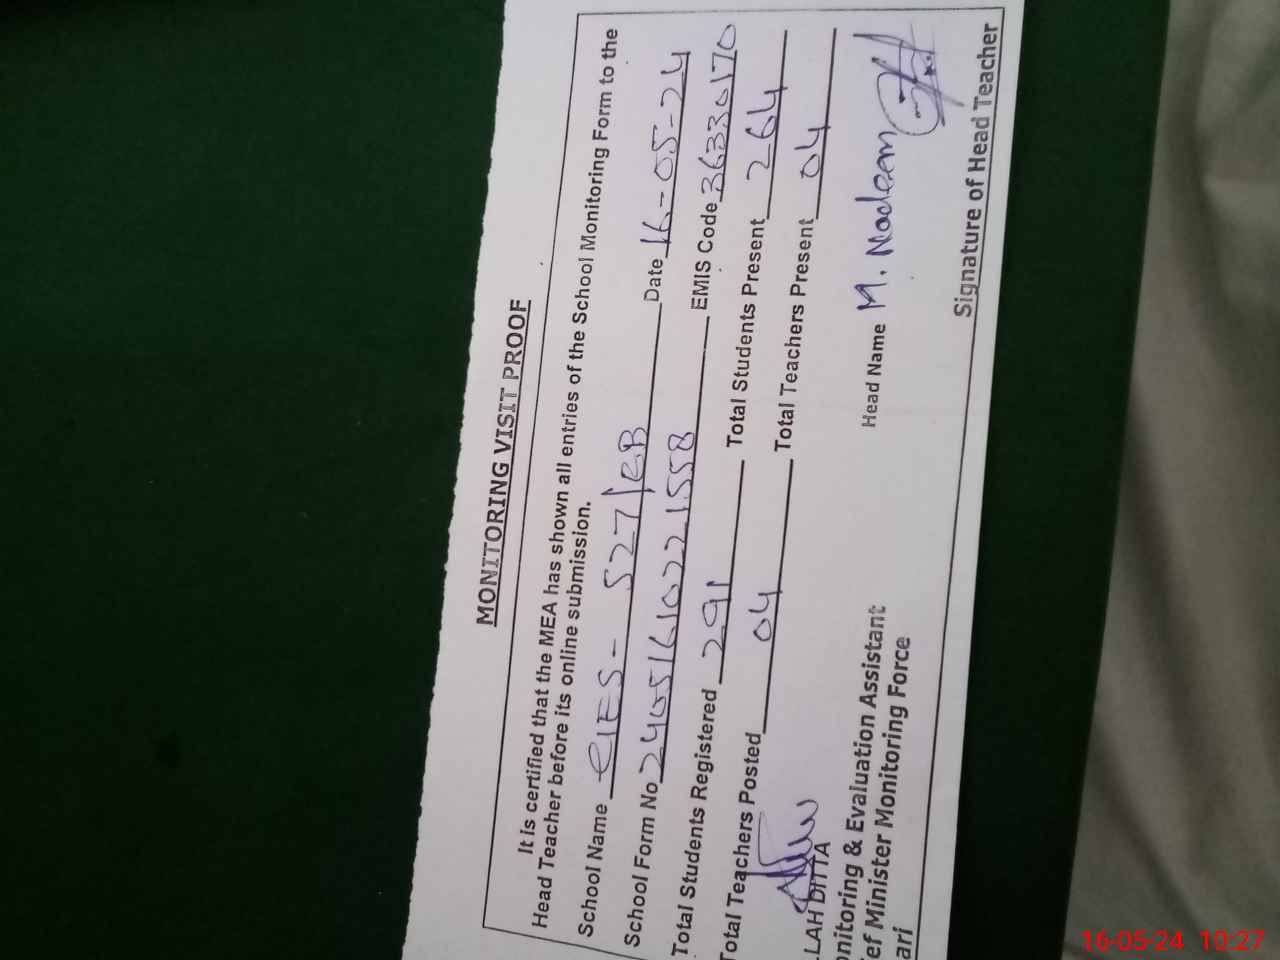 MONITORING VISIT PROOF
It is certified that the MEA has shown all entries of the School Monitoring Form to the
Head Teacher before its online submission.
School Name GES - 527/EB Date 16-05-24
School Form No 24051610221558 EMIS Code 36330170
Total Students Registered 291 Total Students Present 264
Total Teachers Posted 04 Total Teachers Present 04
LLAH DITTA
onitoring & Evaluation Assistant Head Name M. Nadeem
ef Minister Monitoring Force
ari Signature of Head Teacher
16-05-24 10:27